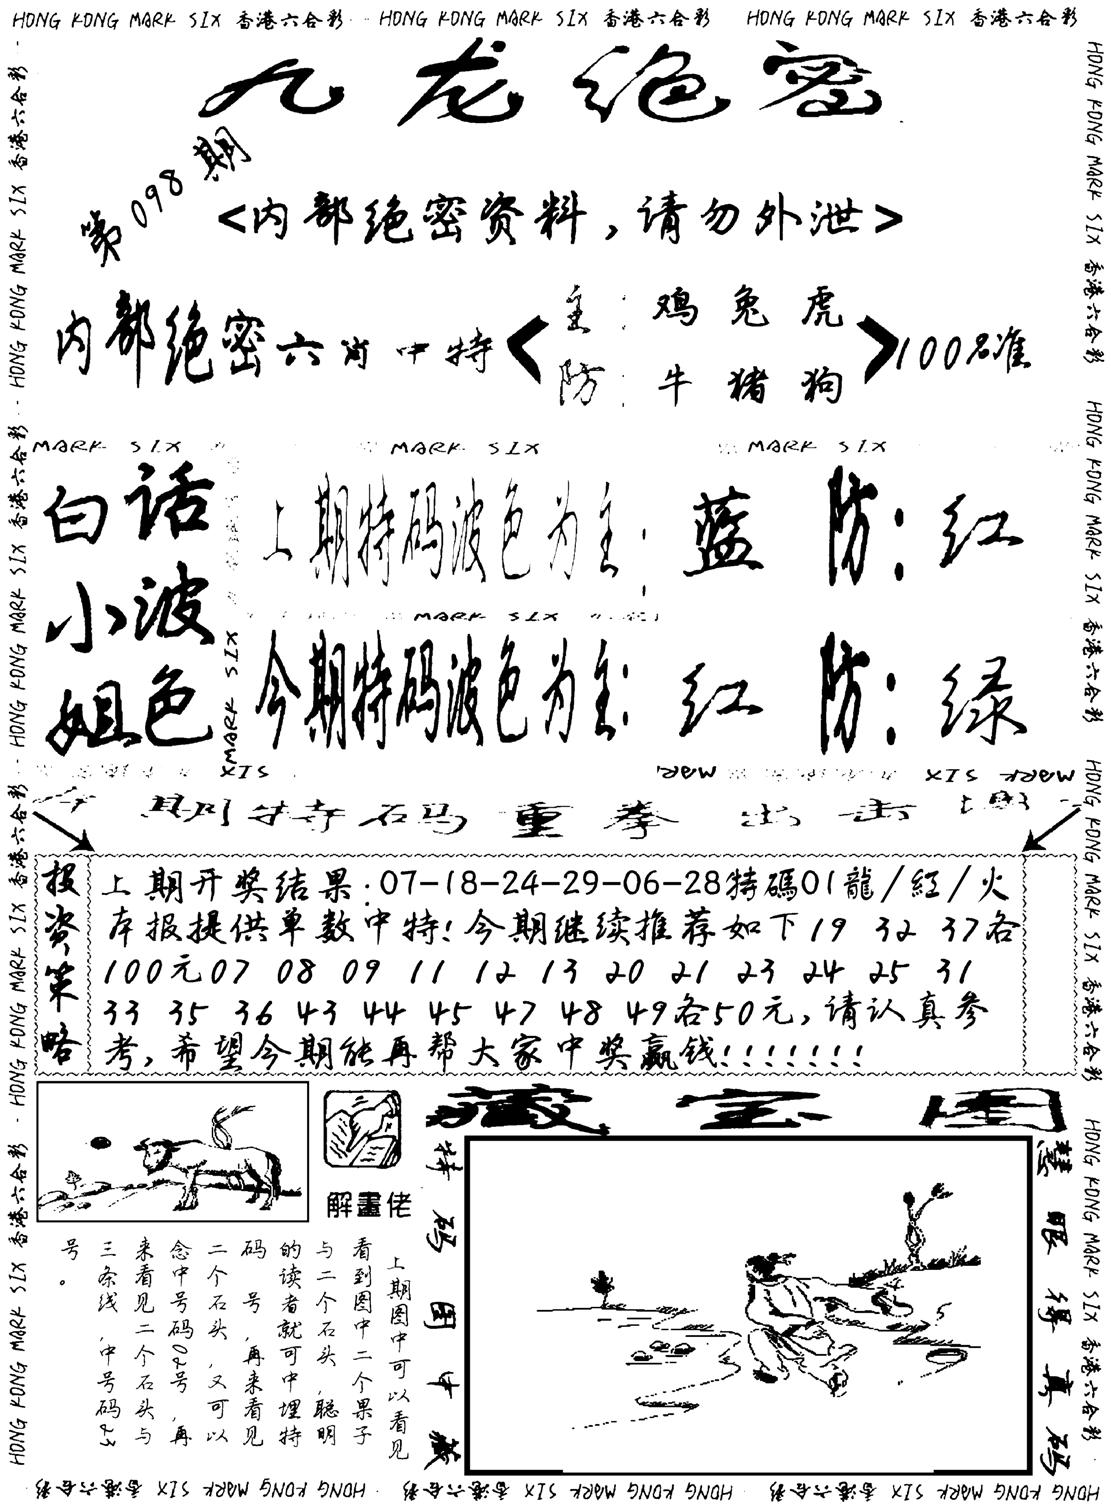 HONG KONG MARK SIX 香港六合彩 HONG KONG MARK SIX 香港六合彩 HONG KONG MARK SIX 香港六合彩
九龙绝密
第098期
<内部绝密资料,请勿外泄>
内部绝密六肖中特
主:鸡兔虎
防:牛猪狗
100%准
MARK SIX MARK SIX MARK SIX
白话
小波
姐色
上期特码波色为主:蓝 防:红
MARK SIX
今期特码波色为主:红 防:绿
MARK SIX
今期特码重拳出击
投资策略
上期开奖结果:07-18-24-29-06-28特碼01龍/紅/火
本报提供单数中特!今期继续推荐如下19 32 37各
100元07 08 09 11 12 13 20 21 23 24 25 31
33 35 36 43 44 45 47 48 49各50元,请认真参
考,希望今期能再帮大家中奖赢钱!!!!!!!
解畫佬
上期图中可以看见
看到图中二个果子
与二个石头,聪明
的读者就可中埋特
码 号,再来看见
二个石头,又可以
念中号码02号,再
来看见二个石头与
三条线,中号码23
号。
藏宝图
特码图中藏
慧眼得真码
HONG KONG MARK SIX 香港六合彩 HONG KONG MARK SIX 香港六合彩 HONG KONG MARK SIX 香港六合彩